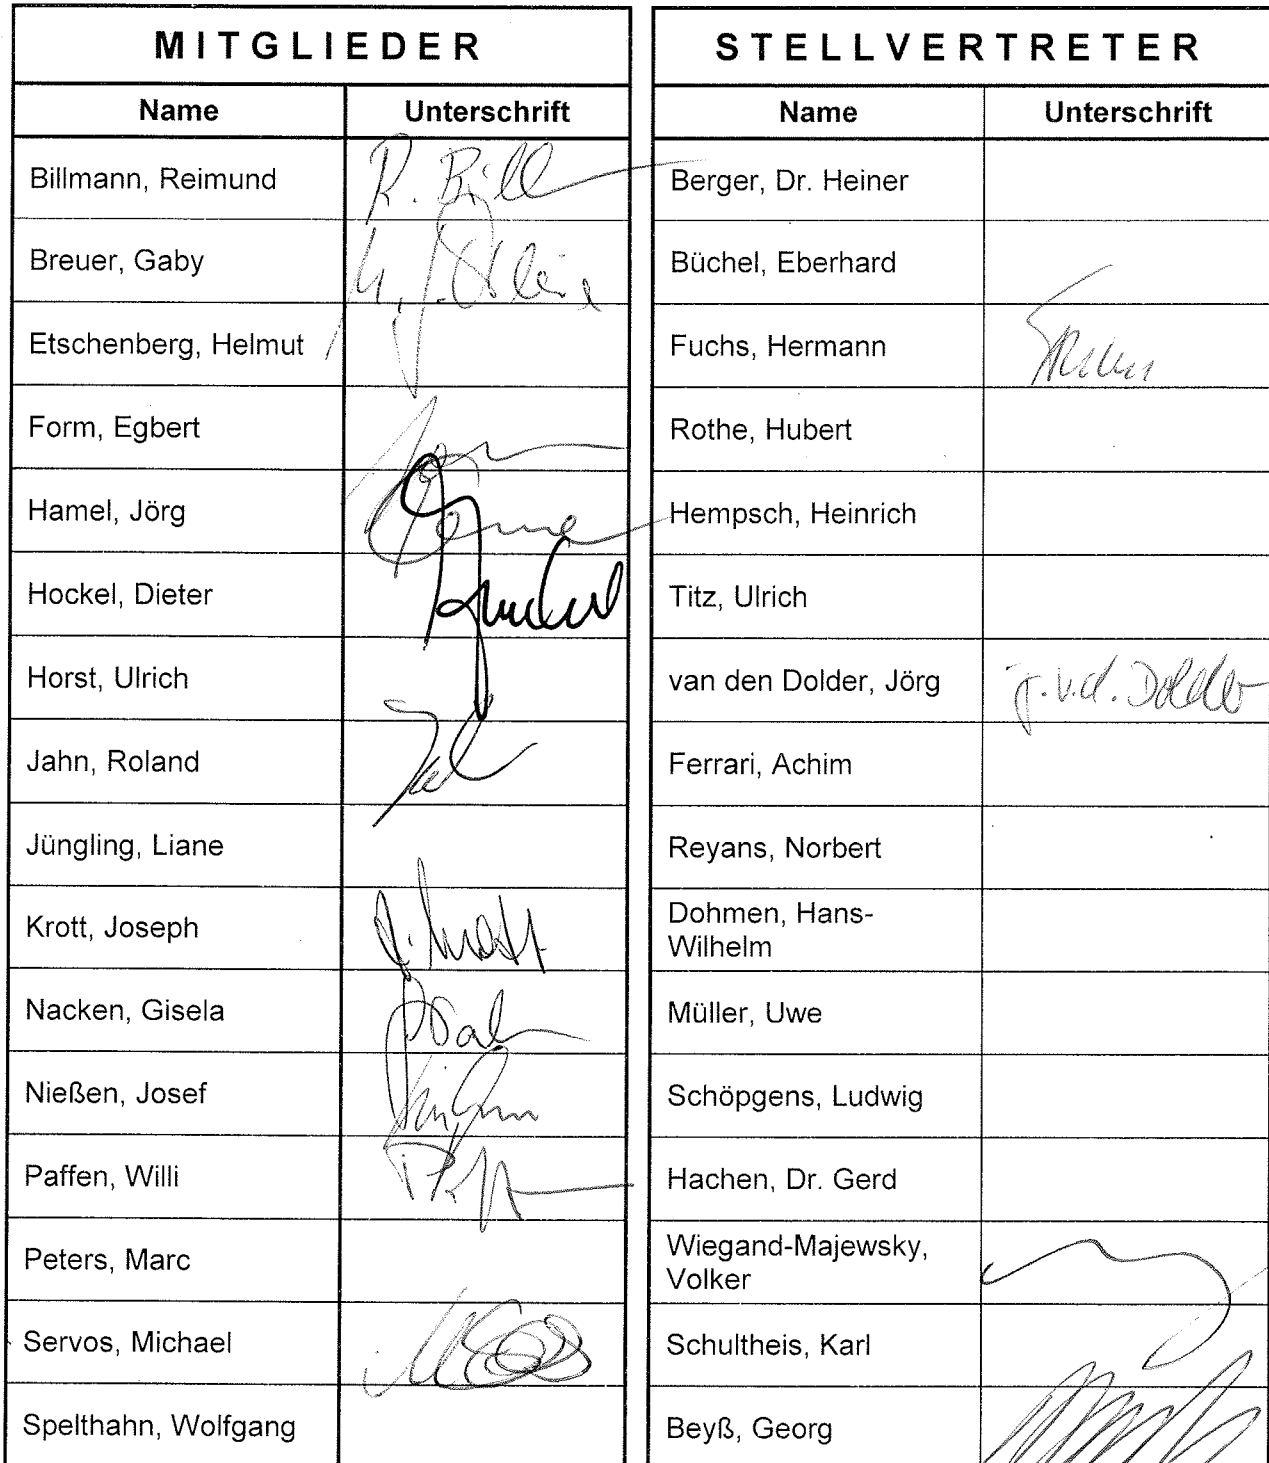 MITGLIEDER
Name Unterschrift
Billmann, Reimund R. Bill
Breuer, Gaby
Etschenberg, Helmut
Form, Egbert
Hamel, Jörg
Hockel, Dieter
Horst, Ulrich
Jahn, Roland
Jüngling, Liane
Krott, Joseph J. Krott
Nacken, Gisela
Nießen, Josef
Paffen, Willi
Peters, Marc
Servos, Michael
Spelthahn, Wolfgang
STELLVERTRETER
Name Unterschrift
Berger, Dr. Heiner
Büchel, Eberhard
Fuchs, Hermann
Rothe, Hubert
Hempsch, Heinrich
Titz, Ulrich
van den Dolder, Jörg J. v.d. Dolder
Ferrari, Achim
Reyans, Norbert
Dohmen, Hans-
Wilhelm
Müller, Uwe
Schöpgens, Ludwig
Hachen, Dr. Gerd
Wiegand-Majewsky,
Volker
Schultheis, Karl
Beyß, Georg